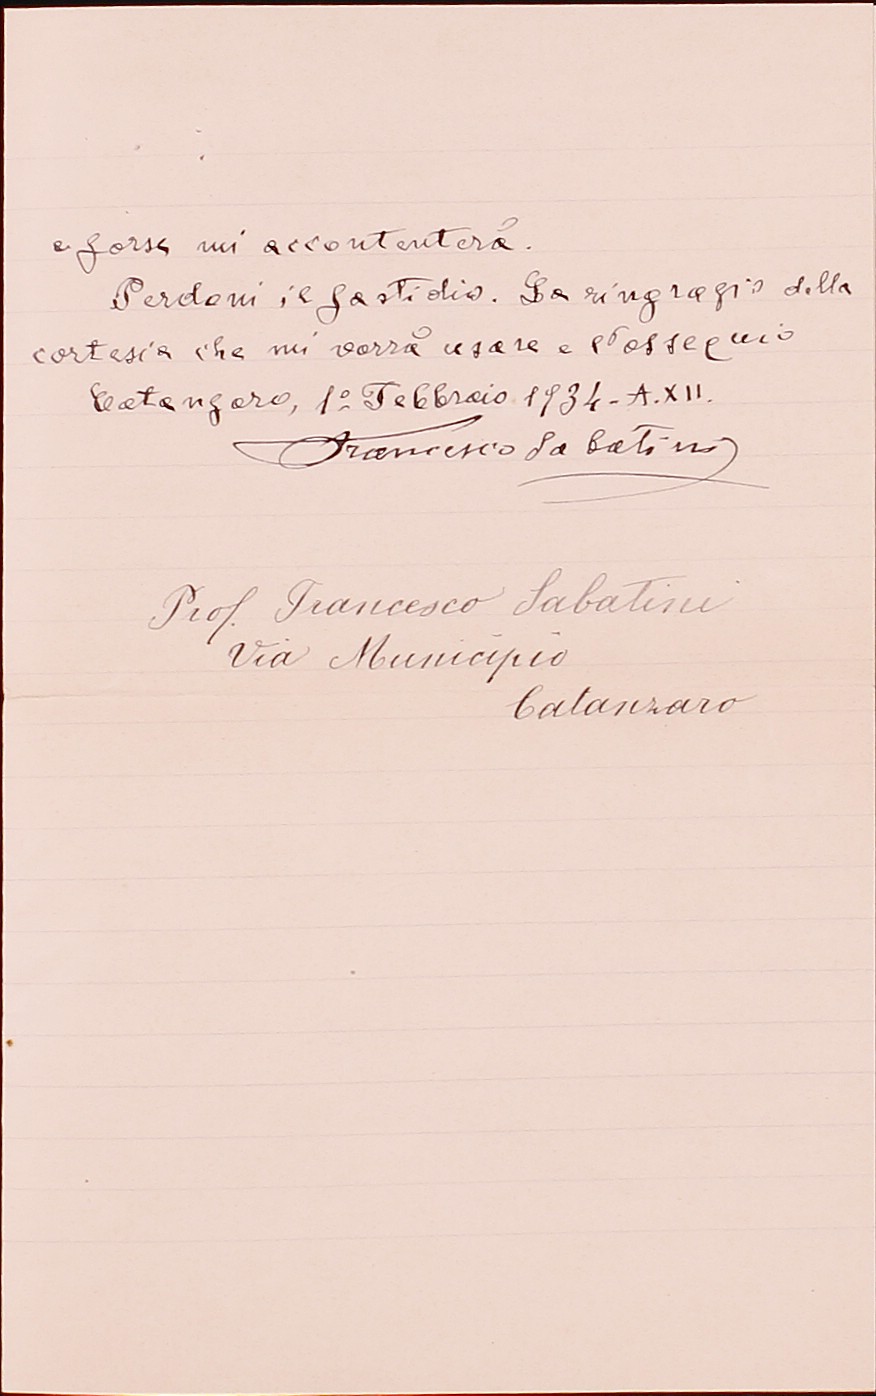 e forse mi accontenterà.
Perdoni il fastidio. La ringrazio della
cortesia che mi vorrà usare e l'ossequio
Catanzaro, 1º Febbraio 1934 - A. XII.
Francesco Sabatini
Prof. Francesco Sabatini
Via Municipio
Catanzaro